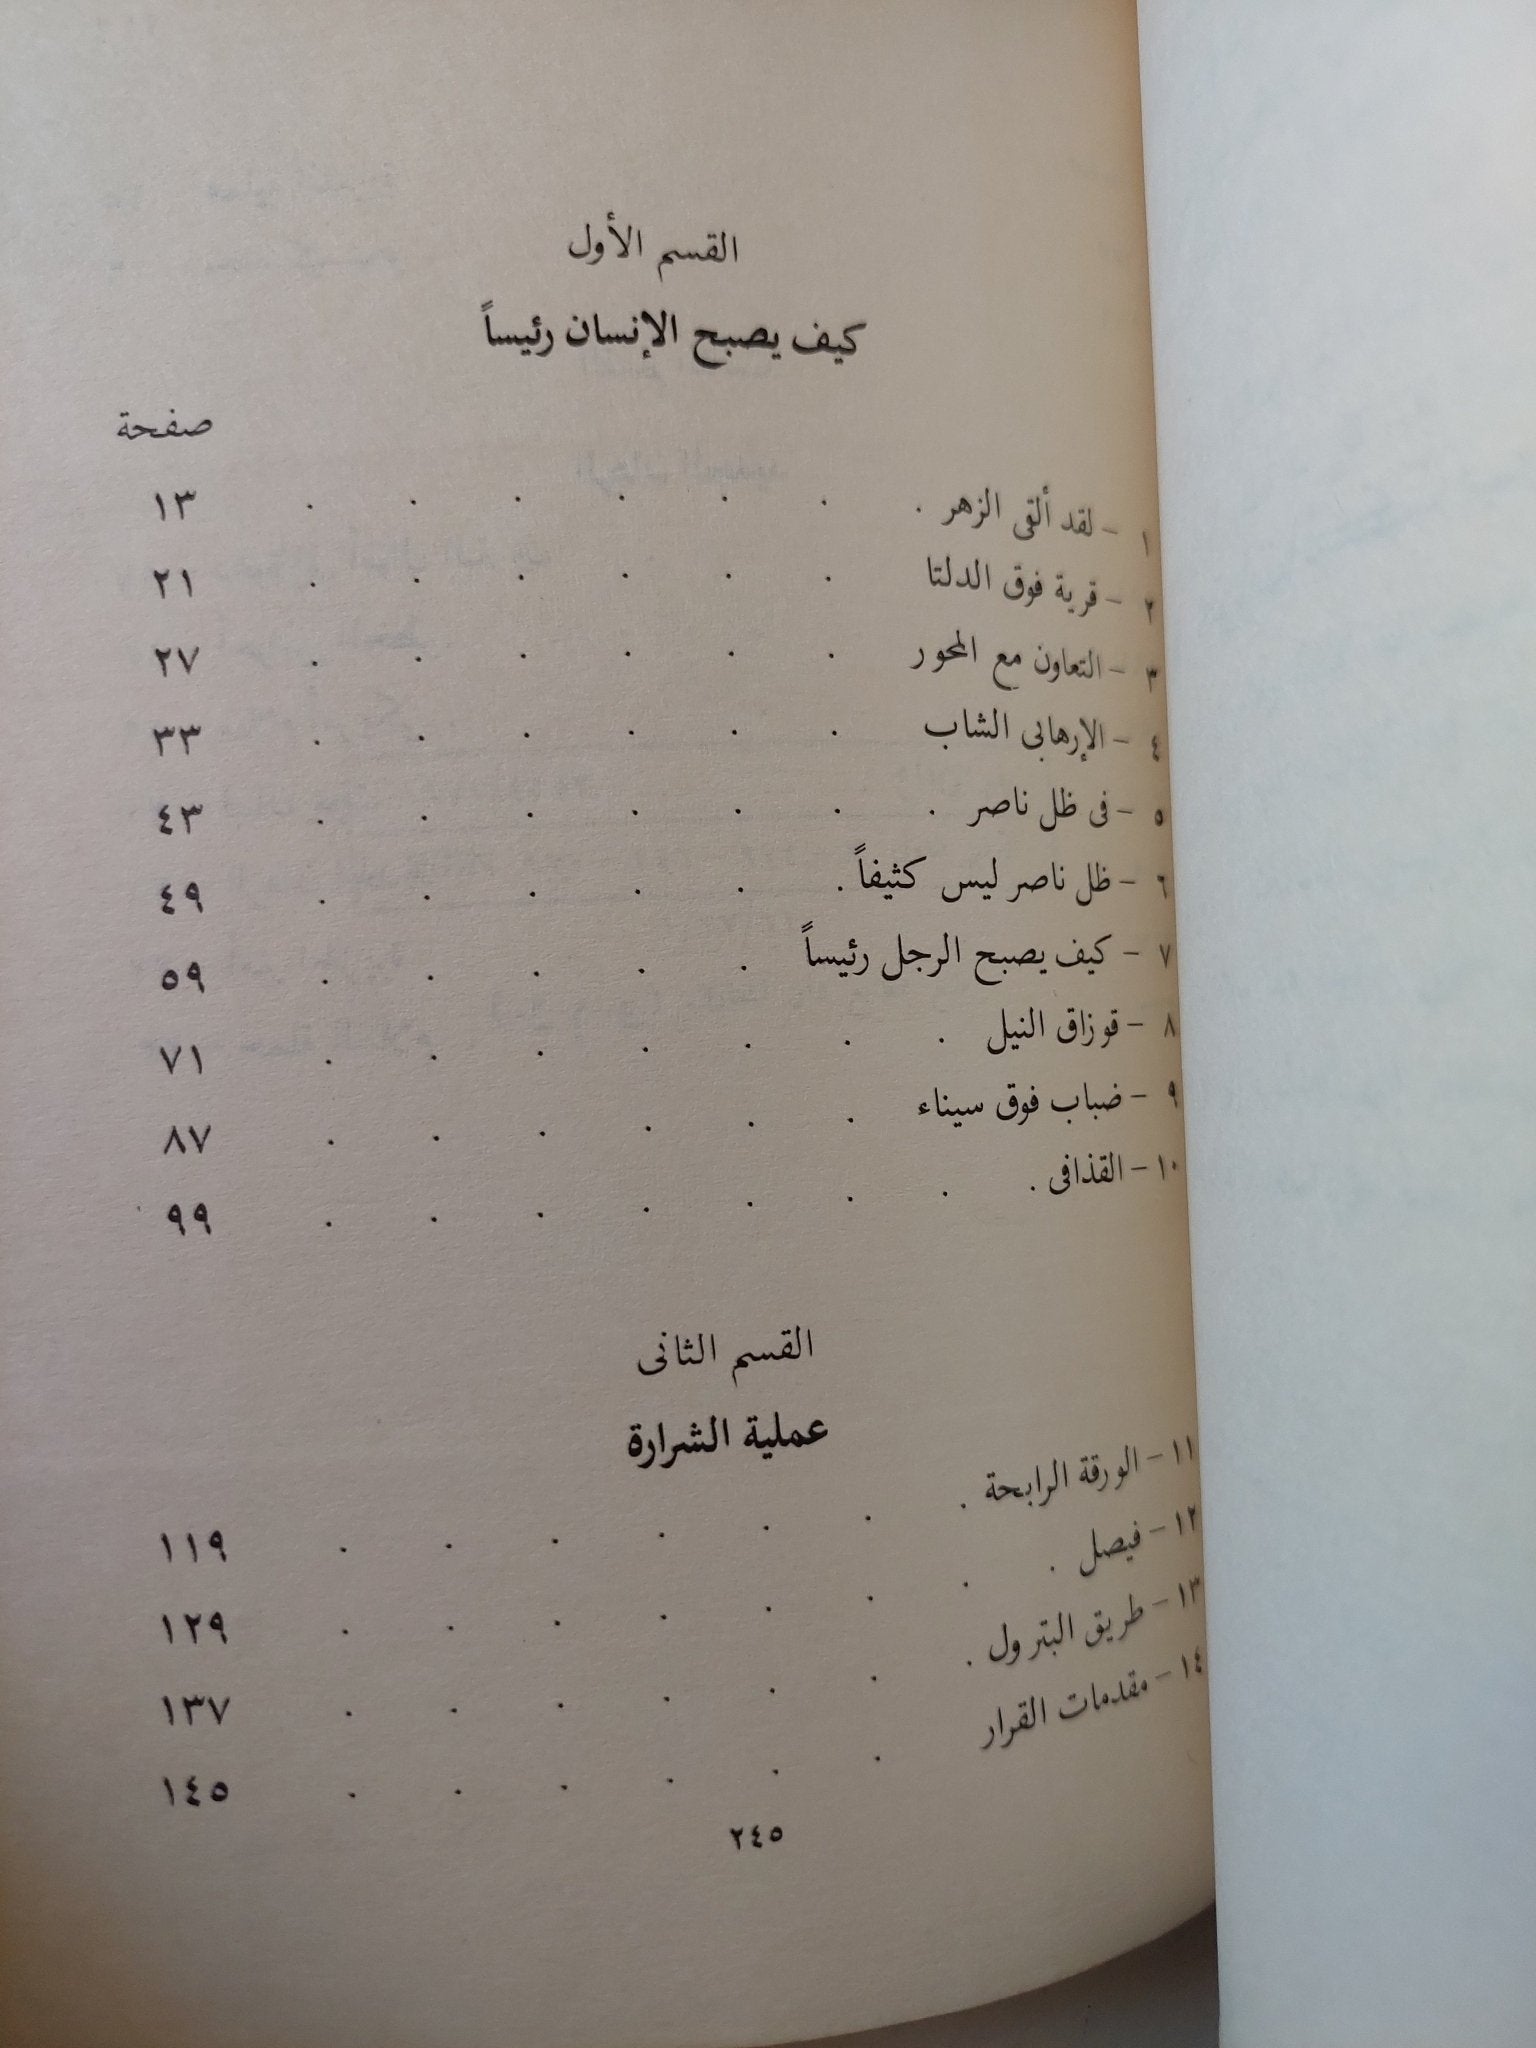 القسم الأول
كيف يصبح الإنسان رئيساً
صفحة
١ - لقد ألقى الزهر . . . . . . . ١٣
٢ - قرية فوق الدلتا . . . . . . ٢١
٣ - التعاون مع المحور . . . . . . ٢٧
٤ - الإرهابى الشاب . . . . . . ٣٣
٥ - فى ظل ناصر . . . . . . . ٤٣
٦ - ظل ناصر ليس كثيفاً . . . . . . ٤٩
٧ - كيف يصبح الرجل رئيساً . . . . . ٥٩
٨ - قوزاق النيل . . . . . . . ٧١
٩ - ضباب فوق سيناء . . . . . . ٨٧
١٠ - القذافى . . . . . . . . ٩٩
القسم الثانى
عملية الشرارة
١١ - الورقة الرابحة . . . . . . . ١١٩
١٢ - فيصل . . . . . . . . ١٢٩
١٣ - طريق البترول . . . . . . . ١٣٧
١٤ - مقدمات القرار . . . . . . ١٤٥
٢٤٥